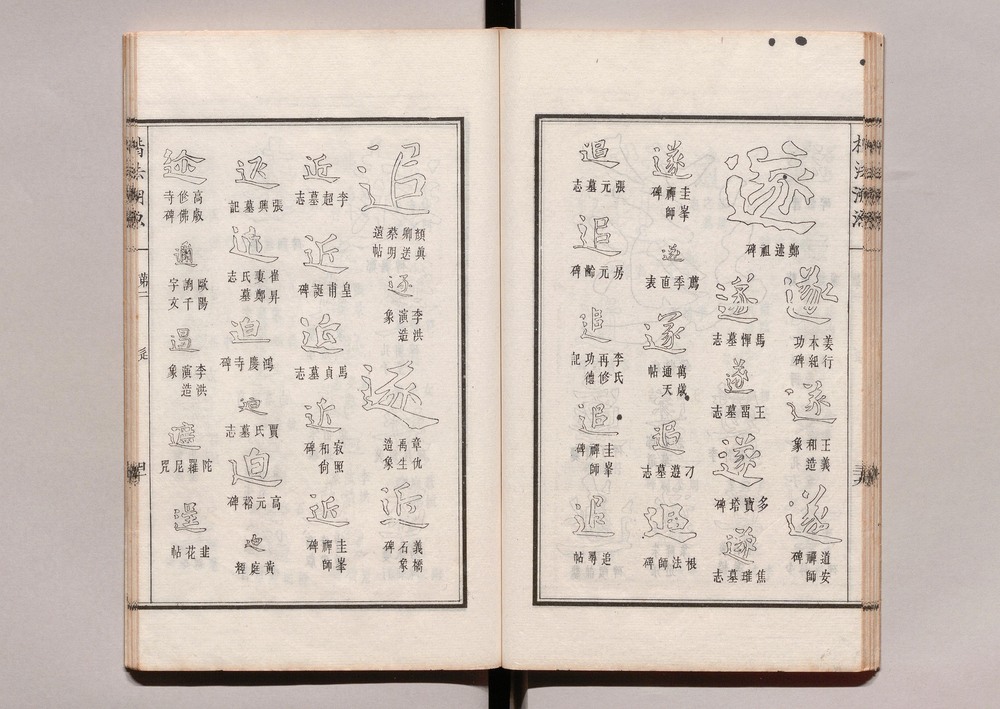 遂
鄭述祖碑
遂
姜行本紀功碑
遂
王義和造象
遂
道安禪師碑
遂
馬惲墓志
遂
王䛒墓志
遂
多寶塔碑
遂
焦璀墓志
遂
圭峯禪師碑
遂
薦季直表
遂
萬歲通天帖
追
刁遵墓志
追
根法師碑
追
張元墓志
追
房元齡碑
追
李氏再修功德記
追
圭峯禪師碑
追
追尋帖
追
顏真卿送蔡明遠帖
逐
李洪演造象
逐
章仇禹生造象
近
義橋石象碑
近
李超墓志
近
皇甫誕碑
近
馬貞墓志
近
寂照和尚碑
近
圭峯禪師碑
返
張興墓記
崔昇妻鄭氏墓志
迫
鴻慶寺碑
迫
賈氏墓志
迫
高元裕碑
黃庭經
高叡修佛寺碑
邇
歐陽詢千字文
遏
李洪演造象
遮
陀羅尼咒
韭花帖
楷法溯源
第二
辵